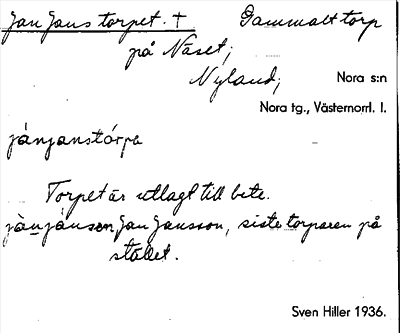 Jan Jans torpet. † Gammalt torp
på Näset,
Nyland, Nora s:n
Nora tg., Västernorrl. l.
jánjanstórpa
Torpet är utlagt till bete.
jànjánsen, Jan Jansson, siste torparen på
stället.
Sven Hiller 1936.